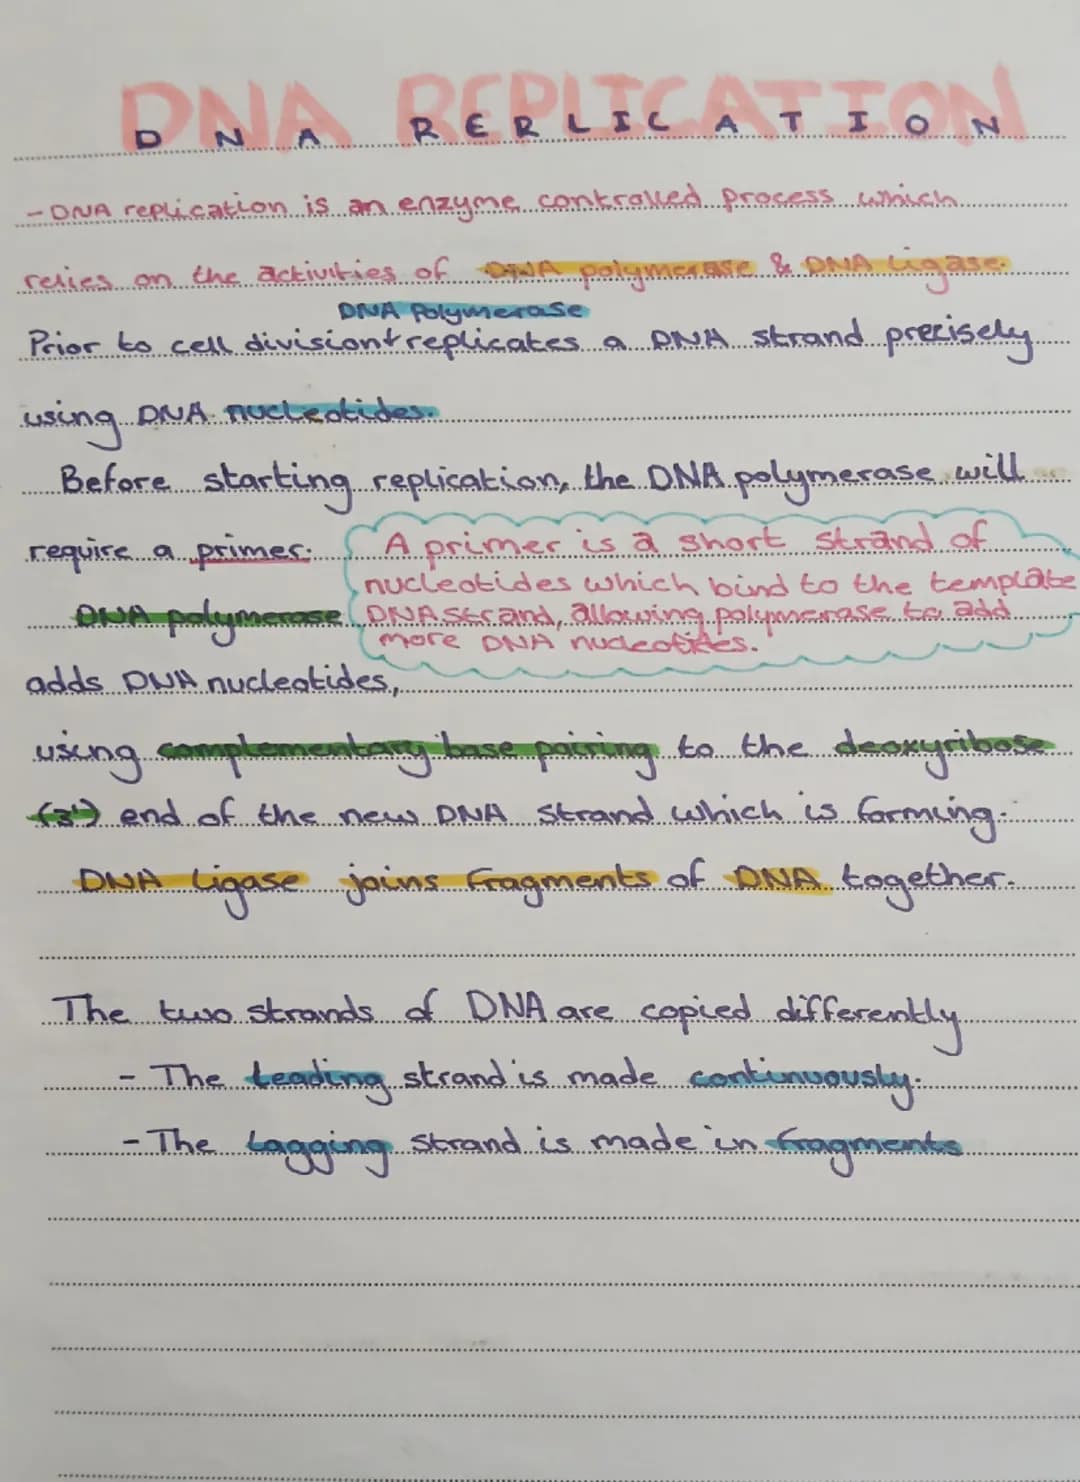 DNA REPLICATION
D N A R E R L I C A T I O N
- DNA replication is an enzyme controlled process which
relies on the activities of DNA polymerase & DNA Ligase.
DNA Polymerase
Prior to cell division↑replicates a DNA strand precisely
using DNA nucleotides.
Before starting replication, the DNA polymerase will
require a primer.
A primer is a short strand of
nucleotides which bind to the template
DNA strand, allowing polymerase to add
more DNA nucleotides.
DNA polymerase
adds DNA nucleotides,
using complementary base pairing to the deoxyribose
(3') end of the new DNA strand which is forming.
DNA Ligase joins fragments of DNA together.
The two strands of DNA are copied differently
- The Leading strand is made continuously.
- The Lagging strand is made in fragments